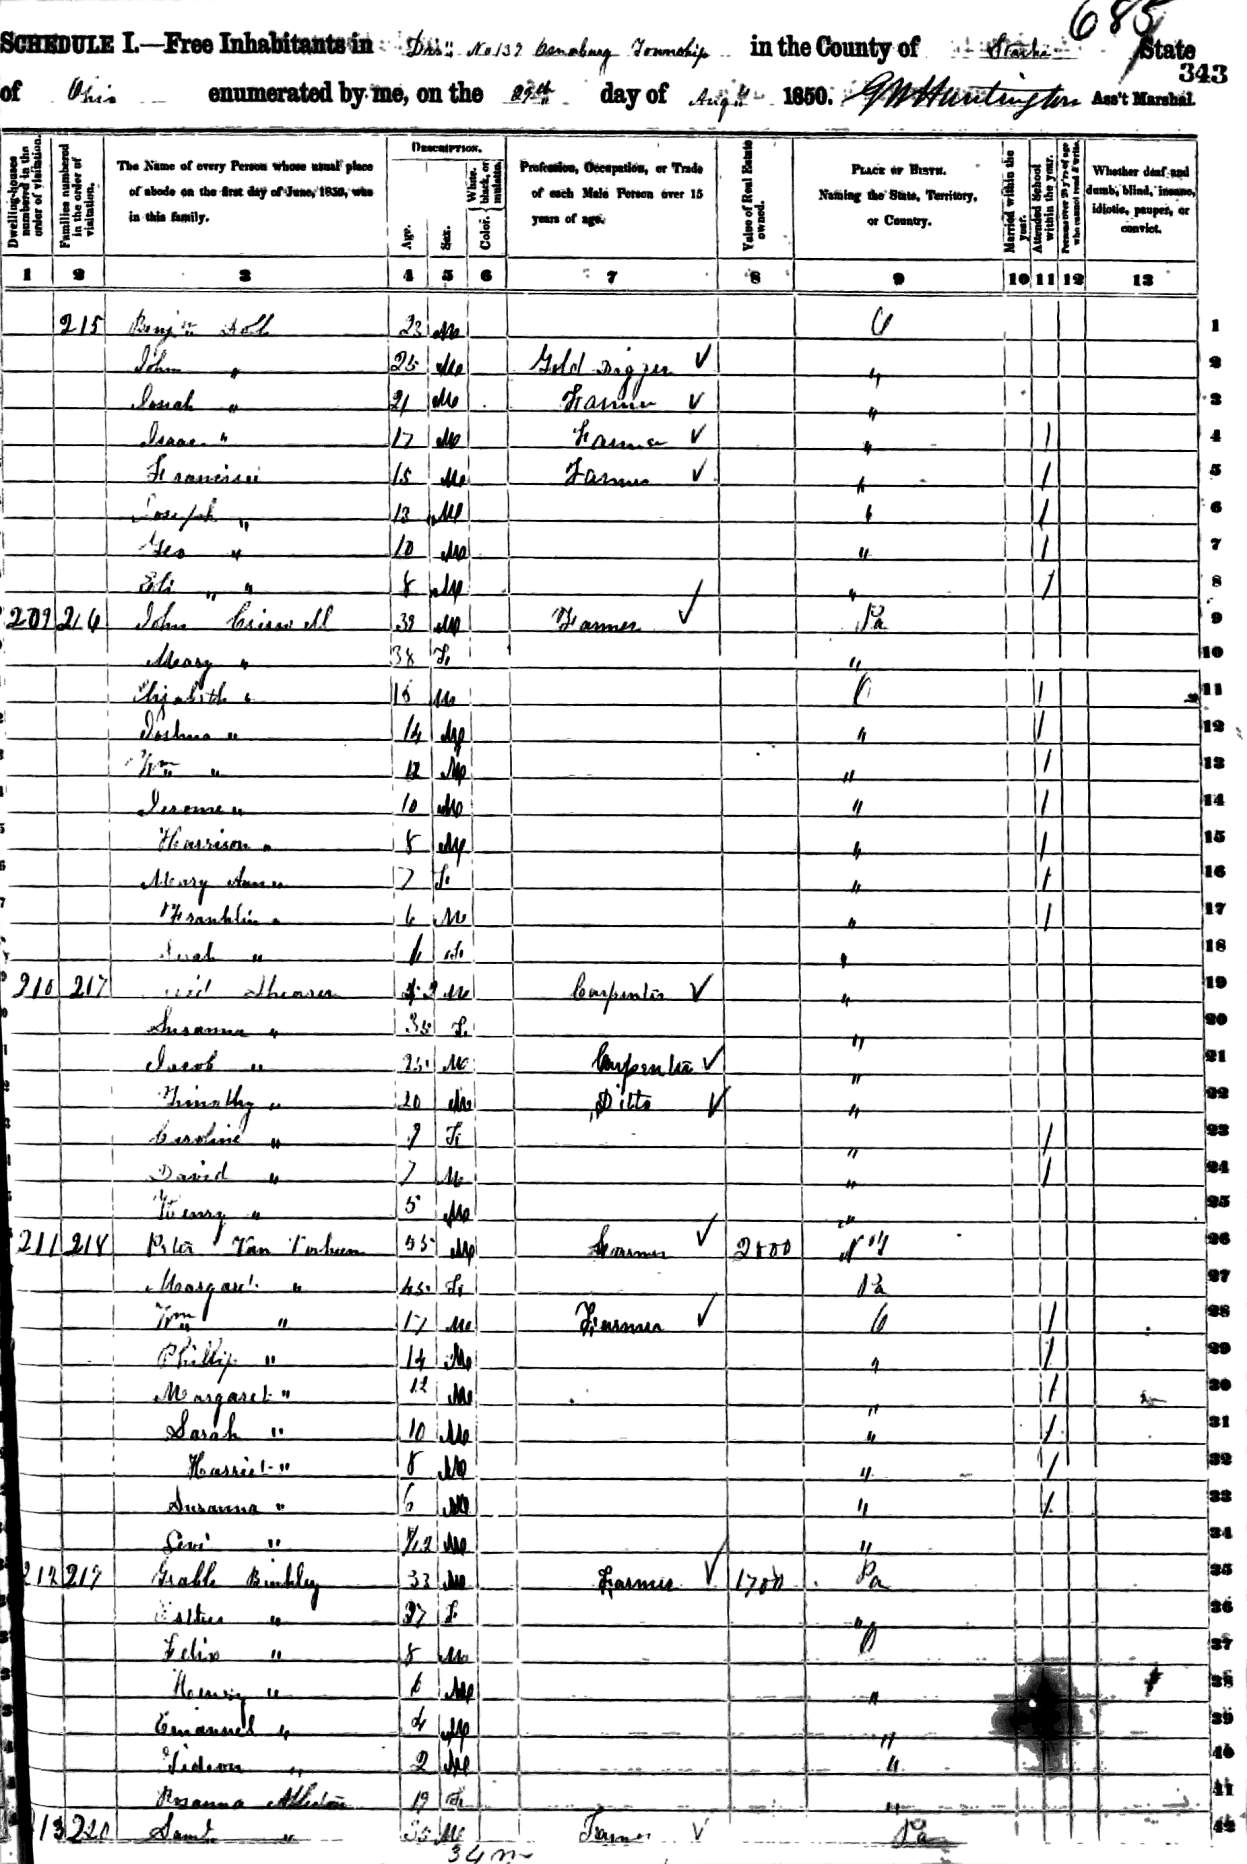 685
SCHEDULE I.—Free Inhabitants in Dis't No 137 Township in the County of Starke State
343
of Ohio enumerated by me, on the 29th day of Aug 1850. G W Huntington Ass't Marshal.
Dwelling-houses numbered in the order of visitation.
Families numbered in the order of visitation.
The Name of every Person whose usual place of abode on the first day of June, 1850, was in this family.
DESCRIPTION.
Age.
Sex.
Color. White, black, or mulatto.
Profession, Occupation, or Trade of each Male Person over 15 years of age.
Value of Real Estate owned.
PLACE OF BIRTH. Naming the State, Territory, or Country.
Married within the year.
Attended School within the year.
Persons over 20 y'rs of age who cannot read & write.
Whether deaf and dumb, blind, insane, idiotic, pauper, or convict.
1 2 3 4 5 6 7 8 9 10 11 12 13
215 Benj'n 23 M O 1
John " 25 M Gold Digger ✓ " 2
Josiah " 21 M Farmer ✓ " 3
Isaac " 17 M Farmer ✓ " / 4
15 M Farmer ✓ " / 5
Joseph " 13 M " / 6
Geo " 10 M " / 7
Eli " " 8 M " / 8
209 216 John Criswell 39 M Farmer ✓ Pa 9
Mary " 38 F " 10
Elizabeth " M O / 11
Joshua " 14 M " / 12
Wm " 12 M " / 13
Jerome " 10 M " / 14
Harrison " 8 M " / 15
Mary Ann " 7 F " / 16
Franklin " 6 M " / 17
" F " 18
210 217 Shearer M Carpenter ✓ " 19
Susanna " 35 F " 20
Jacob " M Carpenter ✓ " 21
Timothy " 20 M Ditto ✓ " 22
Caroline " 9 F " / 23
David " 7 M " / 24
Henry " 5 M " 25
211 218 Peter Van 55 M Farmer ✓ 2800 N Y 26
Margaret " 45 F Pa 27
Wm " 17 M Farmer ✓ O / 28
Phillip " 14 M " / 29
Margaret " 12 M " / 30
Sarah " 10 M " / 31
Harriet " 8 M " / 32
Susanna " 6 M " / 33
Levi " M " 34
212 219 Grable Binkley 33 M Farmer ✓ 1700 Pa 35
Esther " 27 F " 36
Felix " 8 M O 37
Henry " 6 M " 38
Emanuel " 4 M " 39
Gideon " 2 M " 40
Rosanna 19 F " 41
13 220 Saml " 35 M Farmer ✓ Pa 42
34 m